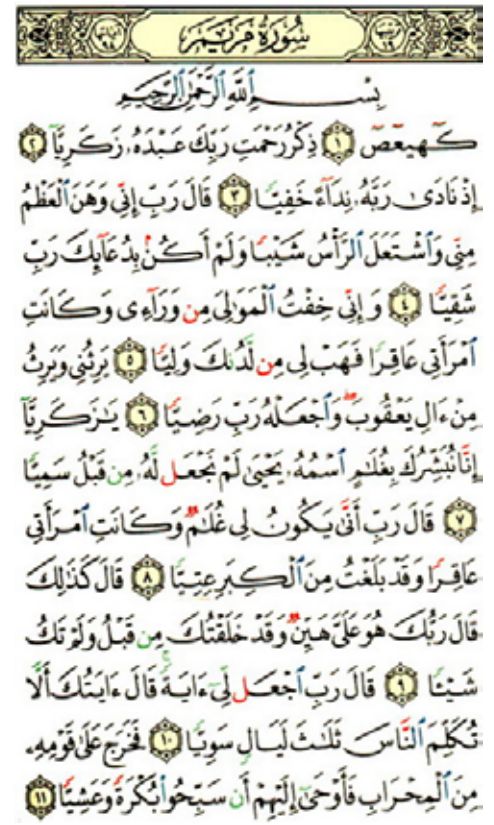 سُورَةُ مَرْيَمَ
بِسْمِ ٱللَّهِ ٱلرَّحْمَٰنِ ٱلرَّحِيمِ
كٓهيعٓصٓ ١ ذِكْرُ رَحْمَتِ رَبِّكَ عَبْدَهُۥ زَكَرِيَّآ ٢
إِذْ نَادَىٰ رَبَّهُۥ نِدَآءً خَفِيًّا ٣ قَالَ رَبِّ إِنِّى وَهَنَ ٱلْعَظْمُ
مِنِّى وَٱشْتَعَلَ ٱلرَّأْسُ شَيْبًا وَلَمْ أَكُنۢ بِدُعَآئِكَ رَبِّ
شَقِيًّا ٤ وَإِنِّى خِفْتُ ٱلْمَوَٰلِىَ مِن وَرَآءِى وَكَانَتِ
ٱمْرَأَتِى عَاقِرًا فَهَبْ لِى مِن لَّدُنكَ وَلِيًّا ٥ يَرِثُنِى وَيَرِثُ
مِنْ ءَالِ يَعْقُوبَ ۖ وَٱجْعَلْهُ رَبِّ رَضِيًّا ٦ يَٰزَكَرِيَّآ
إِنَّا نُبَشِّرُكَ بِغُلَٰمٍ ٱسْمُهُۥ يَحْيَىٰ لَمْ نَجْعَل لَّهُۥ مِن قَبْلُ سَمِيًّا
٧ قَالَ رَبِّ أَنَّىٰ يَكُونُ لِى غُلَٰمٌ وَكَانَتِ ٱمْرَأَتِى
عَاقِرًا وَقَدْ بَلَغْتُ مِنَ ٱلْكِبَرِ عِتِيًّا ٨ قَالَ كَذَٰلِكَ
قَالَ رَبُّكَ هُوَ عَلَىَّ هَيِّنٌ وَقَدْ خَلَقْتُكَ مِن قَبْلُ وَلَمْ تَكُ
شَيْـًٔا ٩ قَالَ رَبِّ ٱجْعَل لِّىٓ ءَايَةً ۚ قَالَ ءَايَتُكَ أَلَّا
تُكَلِّمَ ٱلنَّاسَ ثَلَٰثَ لَيَالٍ سَوِيًّا ١٠ فَخَرَجَ عَلَىٰ قَوْمِهِۦ
مِنَ ٱلْمِحْرَابِ فَأَوْحَىٰٓ إِلَيْهِمْ أَن سَبِّحُوا۟ بُكْرَةً وَعَشِيًّا ١١